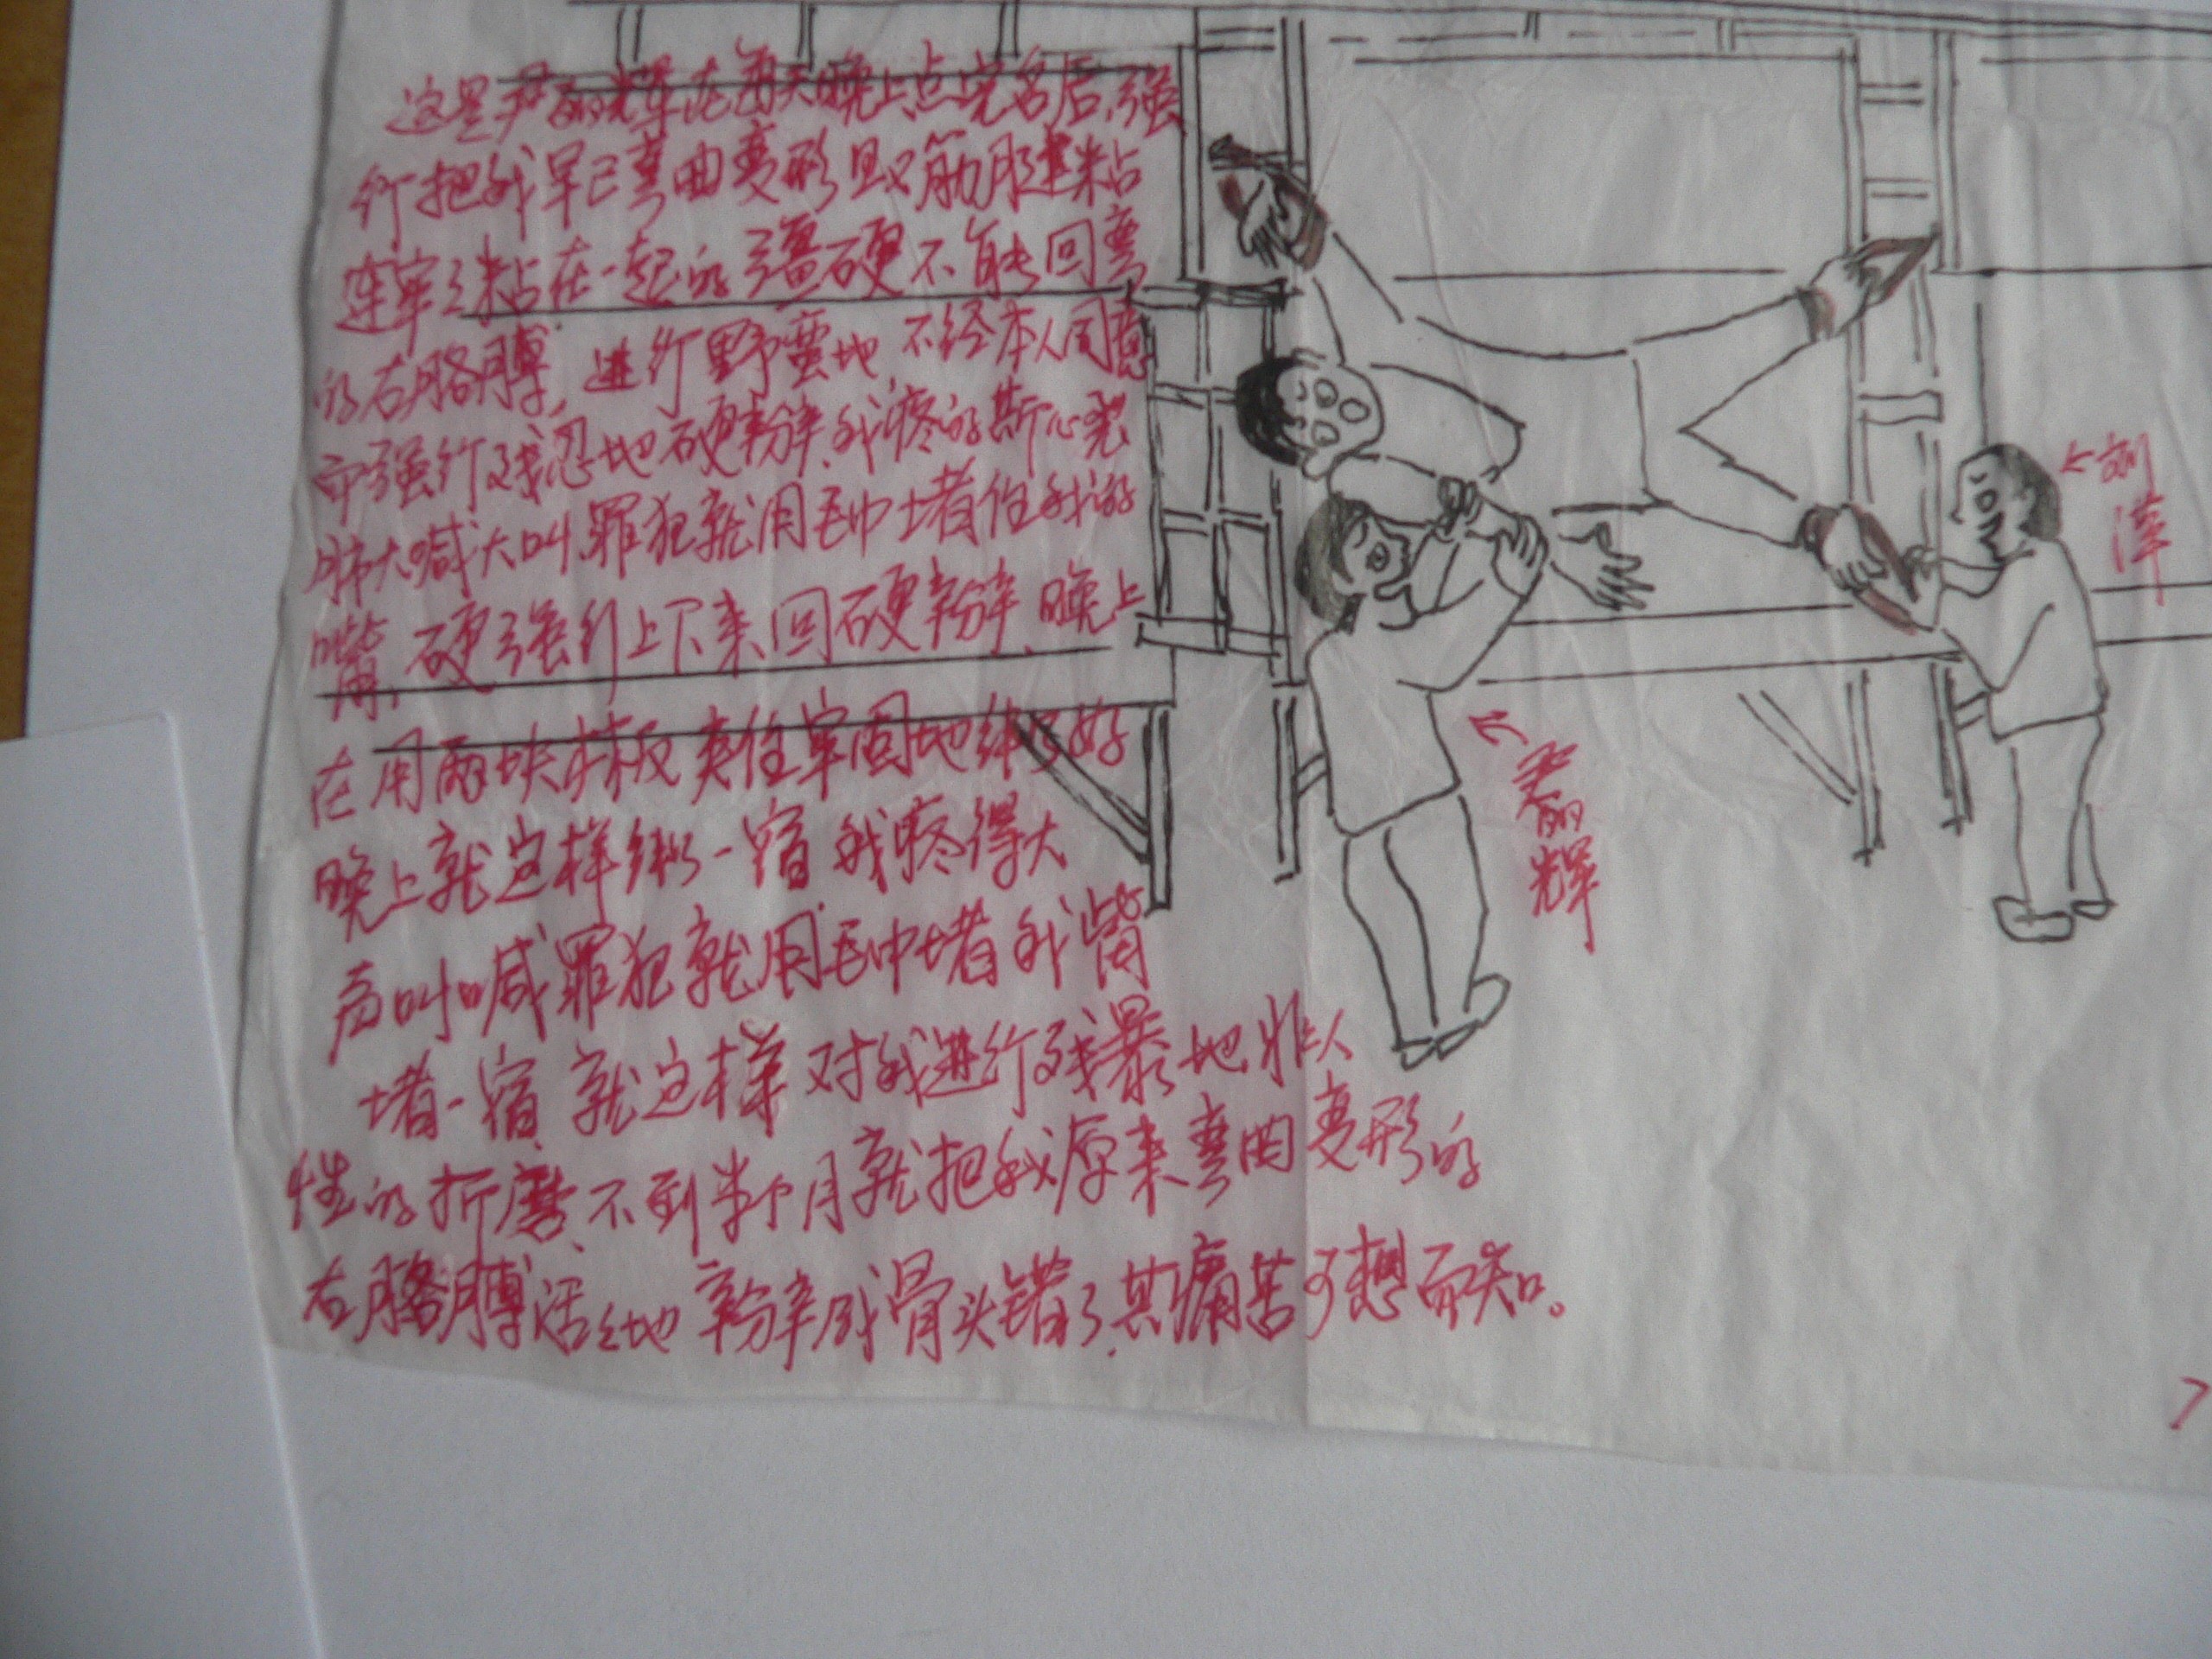 这是尹丽辉在每天晚上点完名后,强
行把我早已弯曲变形且又筋腱粘
连牢牢粘在一起的强硬不能回弯
的右胳膊,进行野蛮地不经本人同意
而强行残忍地硬掰,我疼的斯心裂
肺大喊大叫,罪犯就用毛巾堵住我的
嘴,硬强行上下来回硬掰,晚上
在用两块木板夹住牢固地绑了好
晚上就这样绑一宿我疼得大
声叫喊罪犯就用毛巾堵我嘴
堵一宿,就这样对我进行残暴地非人
性的折磨,不到半个月就把我原来弯曲变形的
右胳膊活活地掰成骨头错了,其痛苦可想而知。
←丽辉
←萍
7